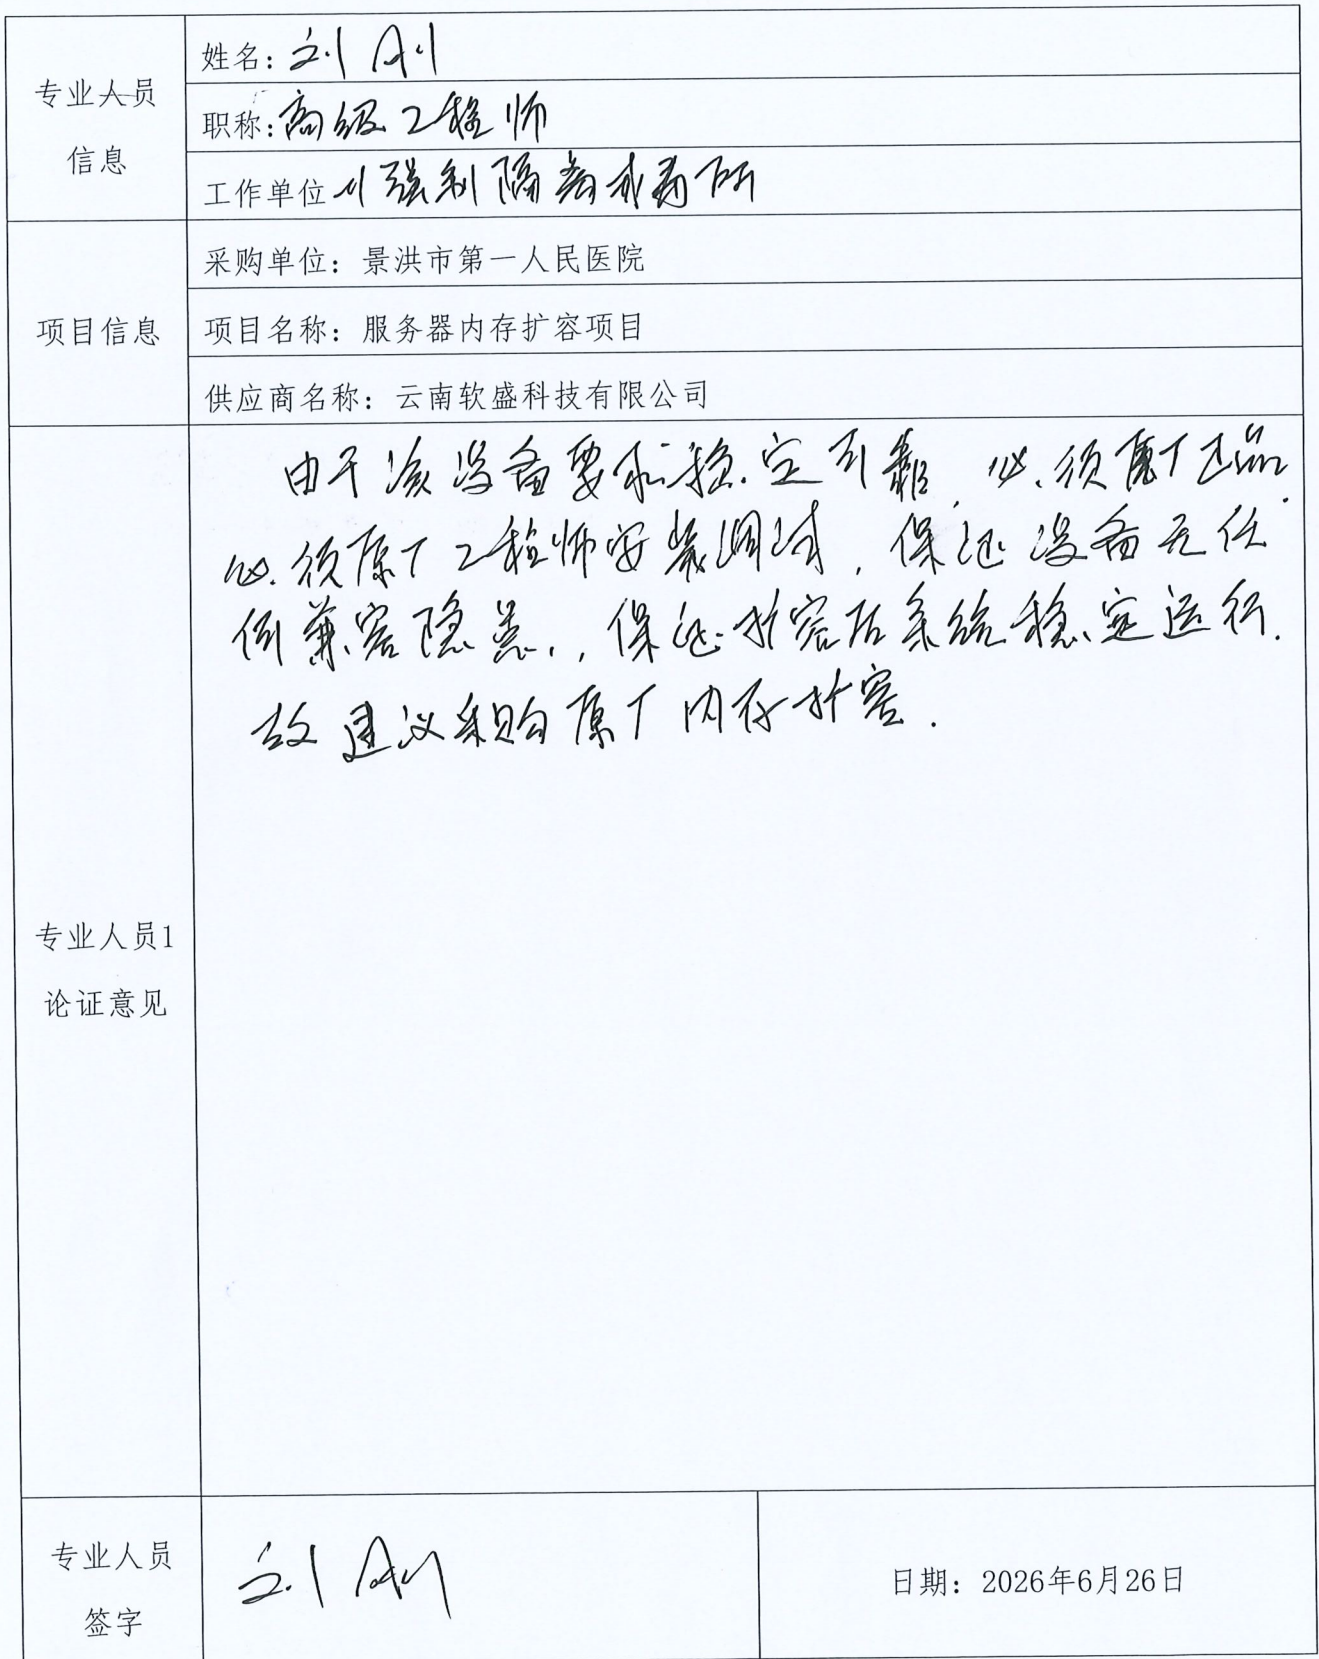 专业人员
信息
姓名：刘刚
职称：高级工程师
工作单位 州强制隔离戒毒所
项目信息
采购单位：景洪市第一人民医院
项目名称：服务器内存扩容项目
供应商名称：云南软盛科技有限公司
专业人员1
论证意见
由于该设备要求稳定可靠，必须原厂正品．
必须原厂工程师安装调试，保证设备无任
何兼容隐患，保证扩容后系统稳定运行．
故建议采购原厂内存扩容．
专业人员
签字
刘刚
日期：2026年6月26日